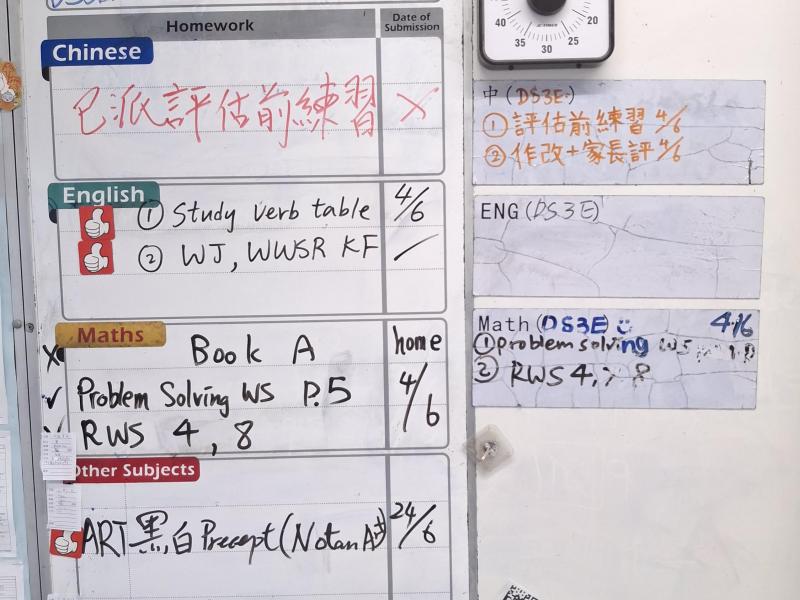 Homework Date of Submission
Chinese
已派評估前練習 ×
English
① Study verb table 4/6
② WJ, WWSR KF
Maths
Book A home
Problem Solving WS P.5 4/6
RWS 4, 8
Other Subjects
ART 黑白 Precept (Notan Art) 24/6
40 35 30 25 20
中 (DS3E)
① 評估前練習 4/6
② 作改+家長評 4/6
ENG (DS3E)
Math (DS3E) 4/6
① Problem solving WS
② RWS 4, 8